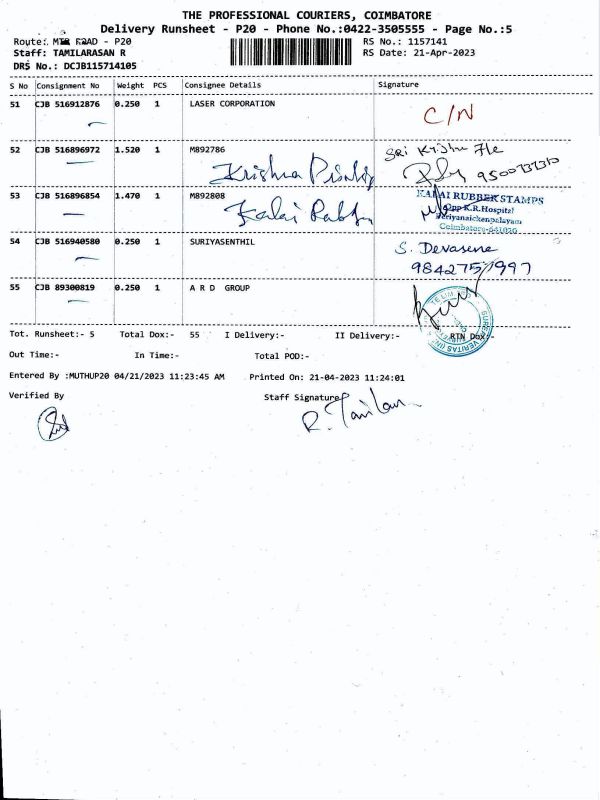 THE PROFESSIONAL COURIERS, COIMBATORE
Delivery Runsheet - P20 - Phone No.:0422-3505555 - Page No.:5
Route: MTR ROAD - P20 RS No.: 1157141
Staff: TAMILARASAN R RS Date: 21-Apr-2023
DRS No.: DCJB115714105
S No Consignment No Weight PCS Consignee Details Signature
51 CJB 516912876 0.250 1 LASER CORPORATION
C/N
52 CJB 516896972 1.520 1 M892786 Sri
Krishna
53 CJB 516896854 1.470 1 M892808 KALAI RUBBER STAMPS
Kalai Opp K.R.Hospital
Periyanaickenpalayam
Coimbatore-641020
54 CJB 516940580 0.250 1 SURIYASENTHIL S. Devasena
9842751997
55 CJB 89300819 0.250 1 A R D GROUP
Tot. Runsheet:- 5 Total Dox:- 55 I Delivery:- II Delivery:- RTN Dox:-
Out Time:- In Time:- Total POD:-
Entered By :MUTHUP20 04/21/2023 11:23:45 AM Printed On: 21-04-2023 11:24:01
Verified By Staff Signature